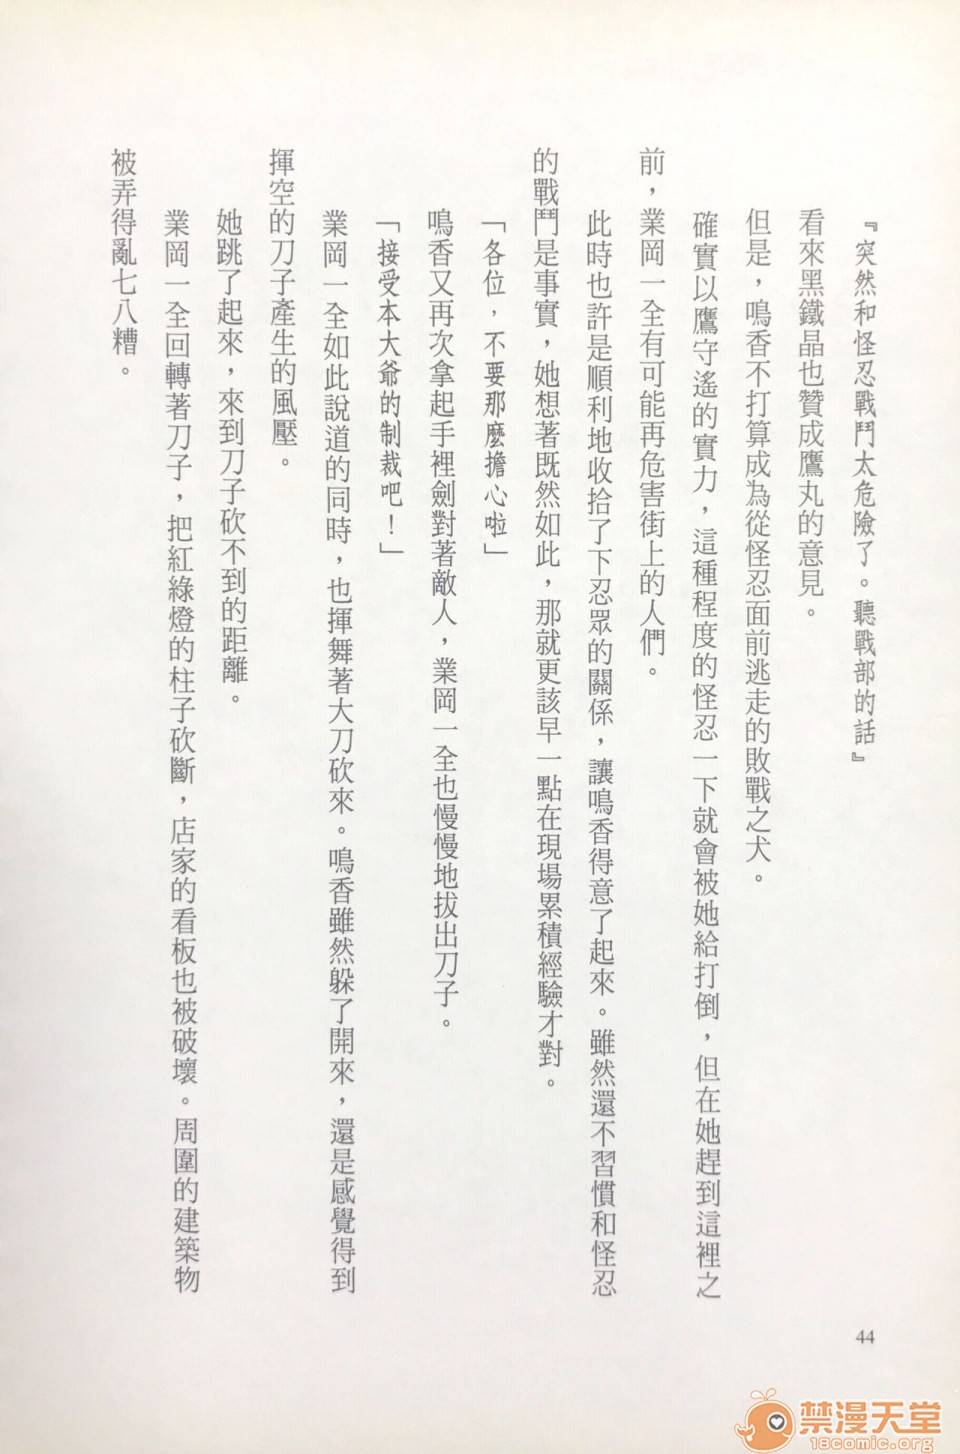 『突然和怪忍戰鬥太危險了。聽戰部的話』
看來黑鐵晶也贊成鷹丸的意見。
但是，鳴香不打算成為從怪忍面前逃走的敗戰之犬。
確實以鷹守遙的實力，這種程度的怪忍一下就會被她給打倒，但在她趕到這裡之
前，業岡一全有可能再危害街上的人們。
此時也許是順利地收拾了下忍眾的關係，讓鳴香得意了起來。雖然還不習慣和怪忍
的戰鬥是事實，她想著既然如此，那就更該早一點在現場累積經驗才對。
「各位，不要那麼擔心啦」
鳴香又再次拿起手裡劍對著敵人，業岡一全也慢慢地拔出刀子。
「接受本大爺的制裁吧！」
業岡一全如此說道的同時，也揮舞著大刀砍來。鳴香雖然躲了開來，還是感覺得到
揮空的刀子產生的風壓。
她跳了起來，來到刀子砍不到的距離。
業岡一全回轉著刀子，把紅綠燈的柱子砍斷，店家的看板也被破壞。周圍的建築物
被弄得亂七八糟。
44
禁漫天堂
18comic.org